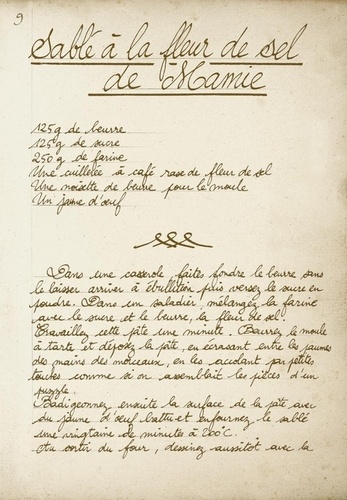 9
Sablé à la fleur de sel
de Mamie
125g de beurre
125g de sucre
250g de farine
Une cuillerée à café rase de fleur de sel
Une noisette de beurre pour le moule
Un jaune d'œuf
Dans une casserole, faites fondre le beurre sans
le laisser arriver à ébullition puis versez le sucre en
poudre. Dans un saladier, mélangez la farine
avec le sucre et le beurre, la fleur de sel.
Travaillez cette pâte une minute. Beurrez le moule
à tarte et déposez la pâte, en écrasant entre les paumes
des mains des morceaux, en les accolant par petites
touches comme si on assemblait les pièces d'un
puzzle.
Badigeonnez ensuite la surface de la pâte avec
du jaune d'œuf battu et enfournez le sablé
une vingtaine de minutes à 200°C.
Au sortir du four, dessinez aussitôt avec la